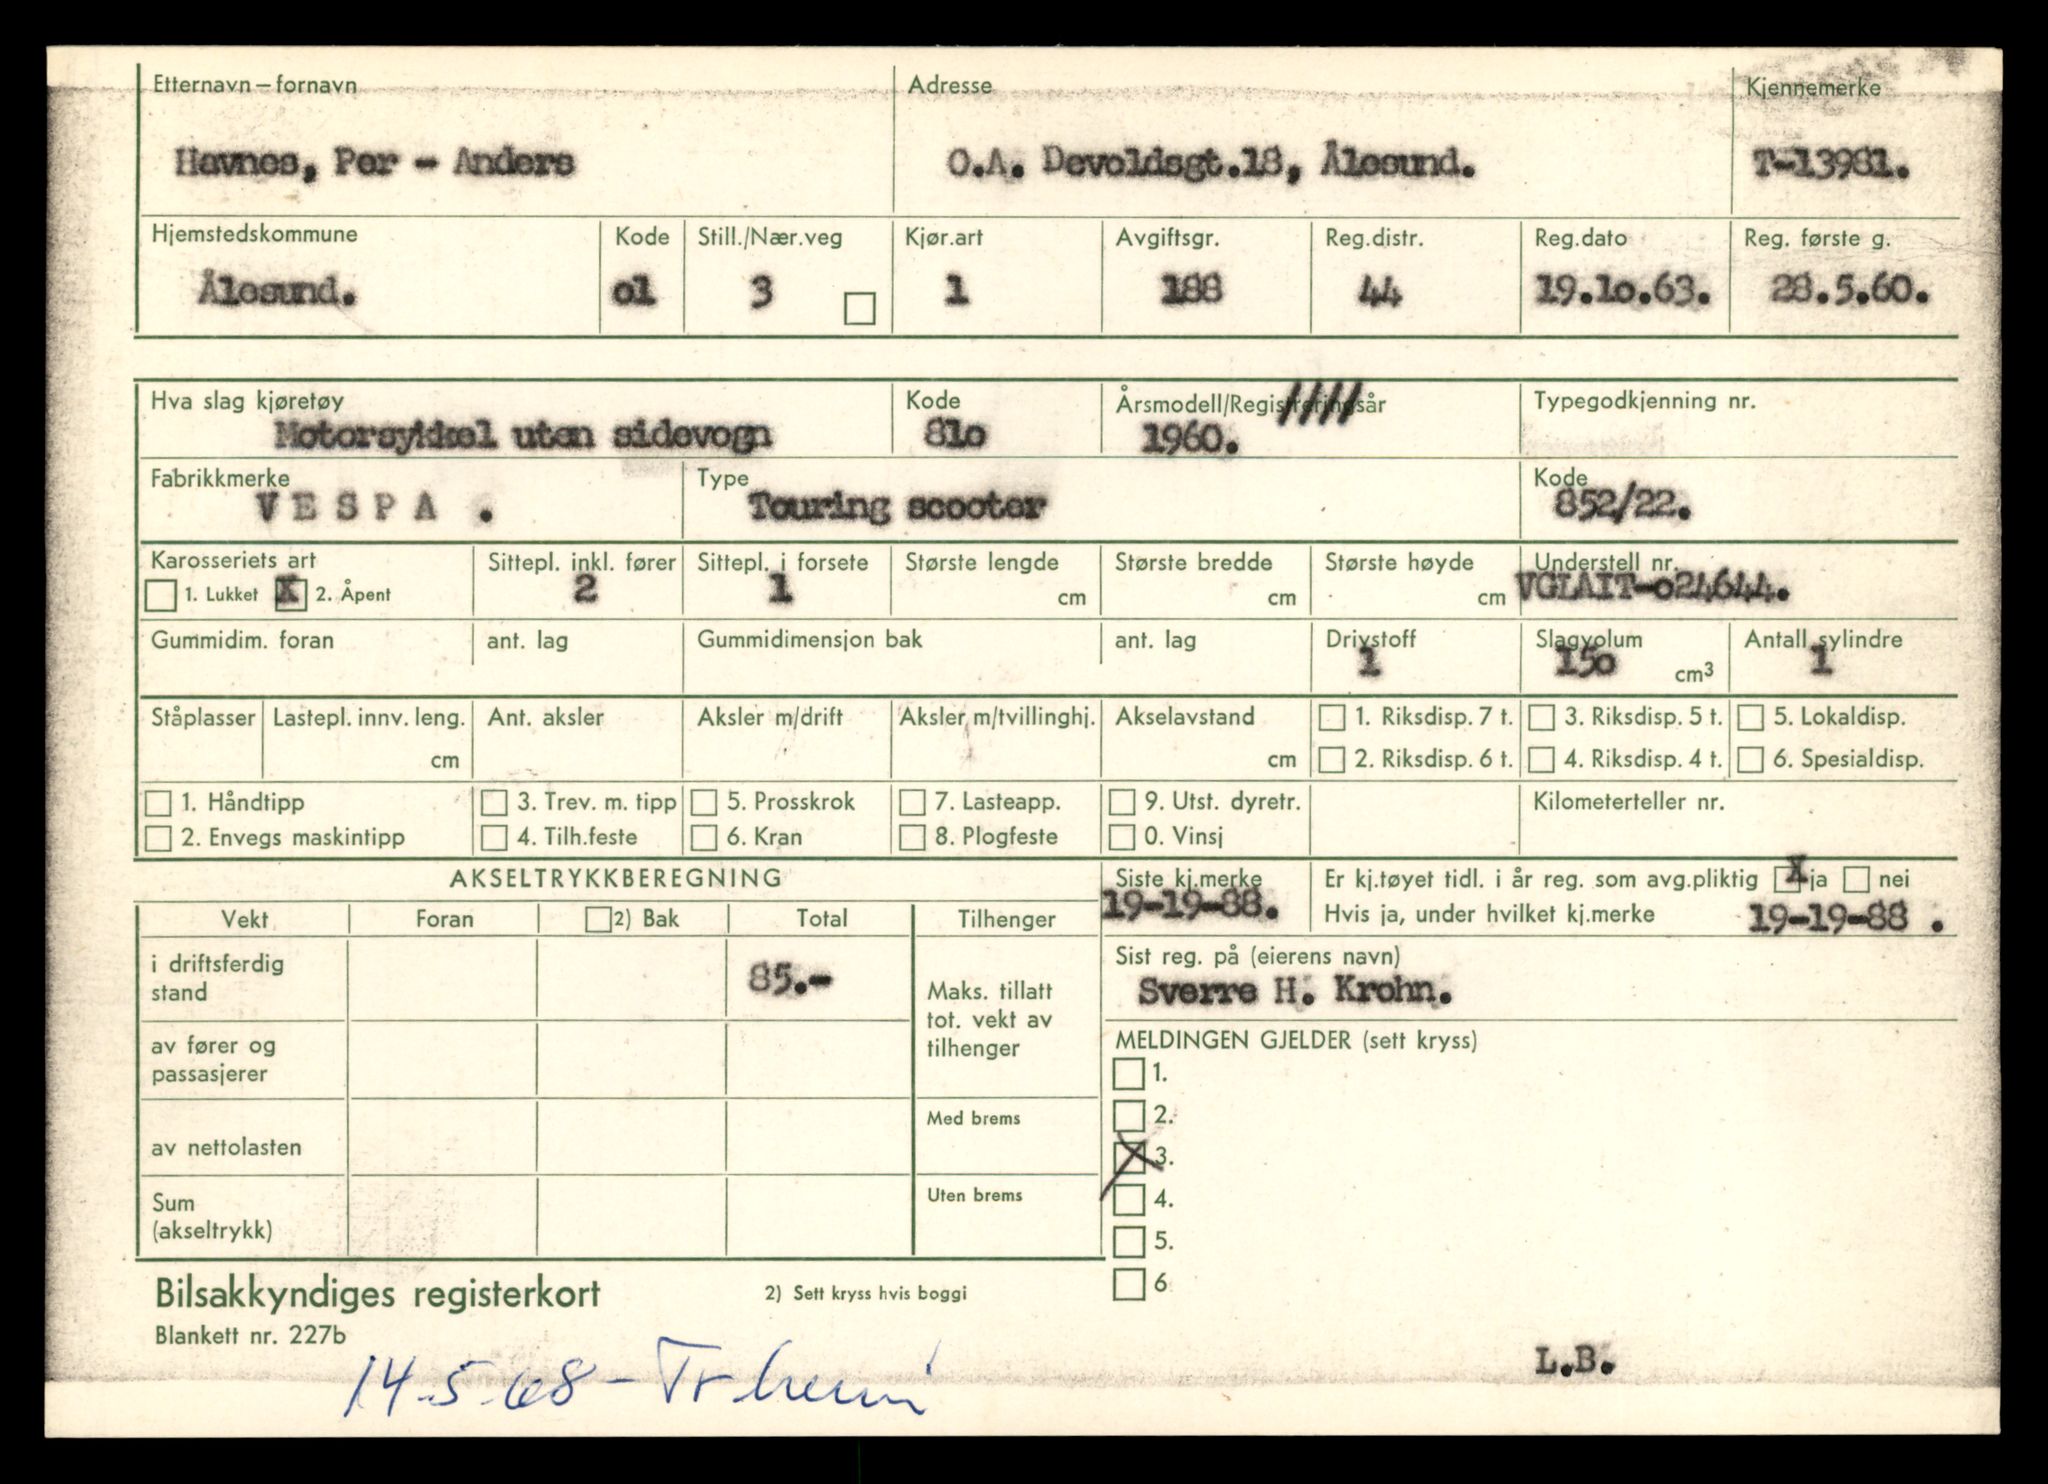 Etternavn – fornavn Adresse Kjennemerke
Havnes, Per - Anders O.A. Devoldsgt.18, Ålesund. T-13981.
Hjemstedskommune Kode Still./Nær.veg Kjør.art Avgiftsgr. Reg.distr. Reg.dato Reg. første g.
Ålesund. o1 3 1 188 44 19.1o.63. 28.5.60.
Hva slag kjøretøy Kode Årsmodell/Registreringsår Typegodkjenning nr.
Motorsykkel uten sidevogn 81o 1960.
Fabrikkmerke Type Kode
VESPA . Touring scooter 852/22.
Karosseriets art Sittepl. inkl. fører Sittepl. i forsete Største lengde Største bredde Største høyde Understell nr.
1. Lukket X 2. Åpent 2 1 cm cm cm VGLAIT-o24644.
Gummidim. foran ant. lag Gummidimensjon bak ant. lag Drivstoff Slagvolum Antall sylindre
1 15o cm3 1
Ståplasser Lastepl. innv. leng. Ant. aksler Aksler m/drift Aksler m/tvillinghj. Akselavstand 1. Riksdisp. 7 t. 3. Riksdisp. 5 t. 5. Lokaldisp.
cm cm 2. Riksdisp. 6 t. 4. Riksdisp. 4 t. 6. Spesialdisp.
1. Håndtipp 3. Trev. m. tipp 5. Prosskrok 7. Lasteapp. 9. Utst. dyretr. Kilometerteller nr.
2. Envegs maskintipp 4. Tilh.feste 6. Kran 8. Plogfeste 0. Vinsj
AKSELTRYKKBEREGNING Siste kj.merke Er kj.tøyet tidl. i år reg. som avg.pliktig X ja nei
19-19-88. Hvis ja, under hvilket kj.merke 19-19-88 .
Vekt Foran 2) Bak Total Tilhenger
i driftsferdig stand 85.-
Maks. tillatt tot. vekt av tilhenger
Sist reg. på (eierens navn)
Sverre H. Krohn.
av fører og passasjerer
MELDINGEN GJELDER (sett kryss)
1.
2.
Med brems
av nettolasten
X 3.
Uten brems
4.
Sum (akseltrykk)
5.
6
Bilsakkyndiges registerkort 2) Sett kryss hvis boggi
Blankett nr. 227b
14-5-68 - Trheim
L.B.